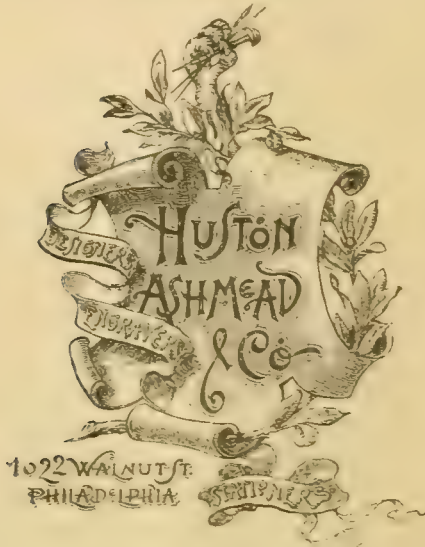 HUSTON
ASHMEAD
& Co
DESIGNERS
ENGRAVERS
1022 WALNUT ST.
PHILADELPHIA
STATIONERS